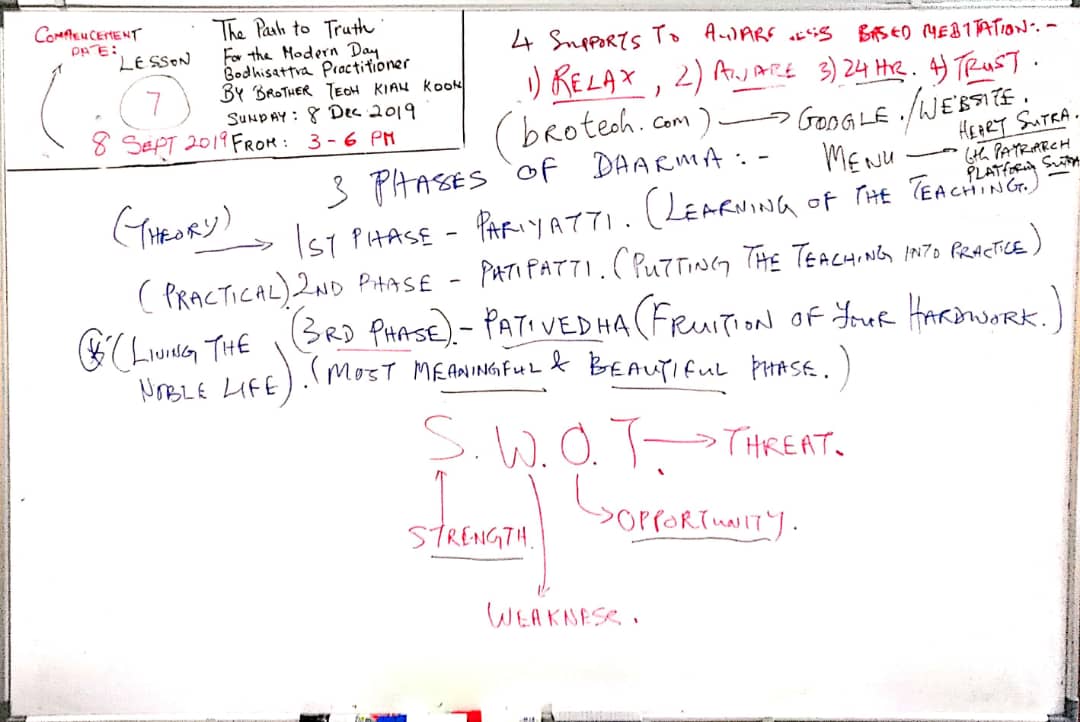 COMMENCEMENT
DATE:
LESSON
7
8 SEPT 2019
The Path to Truth
For the Modern Day
Bodhisattva Practitioner
BY BROTHER TEOH KIAN KOON
SUNDAY: 8 Dec 2019
FROM: 3-6 PM
4 SUPPORTS TO AWARENESS BASED MEDITATION:-
1) RELAX, 2) AWARE 3) 24 HR. 4) TRUST.
(broteoh.com) → GOOGLE./WEBSITE.
MENU — HEART SUTRA.
6th PATRARCH
PLATFORM SUTRA
3 PHASES OF DHARMA:-
(THEORY) → 1ST PHASE - PARIYATTI. (LEARNING OF THE TEACHING.)
(PRACTICAL) 2ND PHASE - PATIPATTI. (PUTTING THE TEACHING INTO PRACTICE)
(LIVING THE NOBLE LIFE). (3RD PHASE) - PATIVEDHA (FRUITION OF YOUR HARDWORK.)
(MOST MEANINGFUL & BEAUTIFUL PHASE.)
S. W. O. T. → THREAT.
STRENGTH.
OPPORTUNITY.
WEAKNESS.